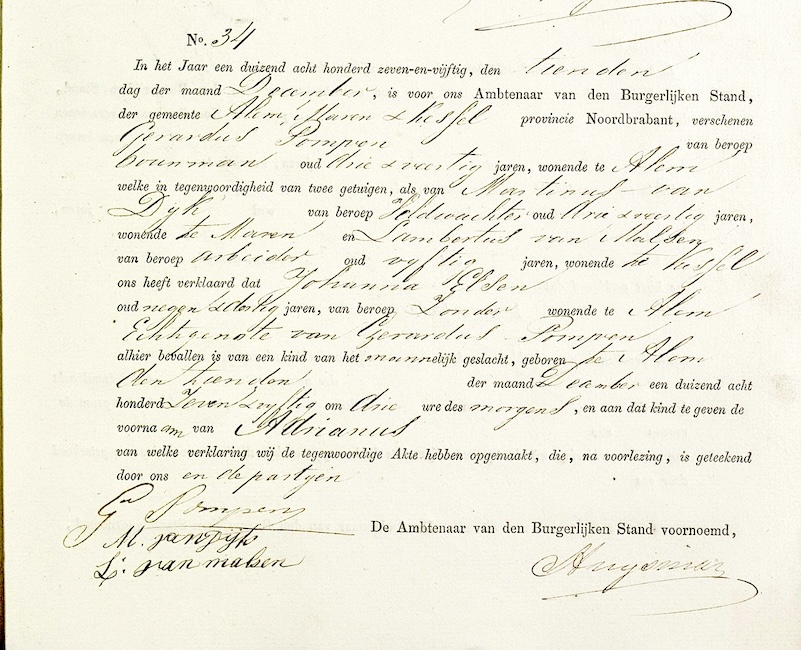 No. 34
In het Jaar een duizend acht honderd zeven-en-vijftig, den tienden
dag der maand December, is voor ons Ambtenaar van den Burgerlijken Stand,
der gemeente Alem, Maren & Kessel provincie Noordbrabant, verschenen
Gerardus Pompen van beroep
bouwman oud drie & veertig jaren, wonende te Alem
welke in tegenwoordigheid van twee getuigen, als van Martinus van
Dyk van beroep Veldwachter oud drie & veertig jaren,
wonende te Maren en Lambertus van Malsen
van beroep arbeider oud vyftig jaren, wonende te Kessel
ons heeft verklaard dat Johanna Elsen
oud negen & dertig jaren, van beroep Zonder wonende te Alem
Echtgenote van Gerardus Pompen
alhier bevallen is van een kind van het mannelijk geslacht, geboren te Alem
den tienden der maand December een duizend acht
honderd Zeven & vyftig om drie ure des morgens, en aan dat kind te geven de
voornaam van Adrianus
van welke verklaring wij de tegenwoordige Akte hebben opgemaakt, die, na voorlezing, is geteekend
door ons en de partyen
Gr Pompen
De Ambtenaar van den Burgerlijken Stand voornoemd,
M. van dijk
L: van malsen